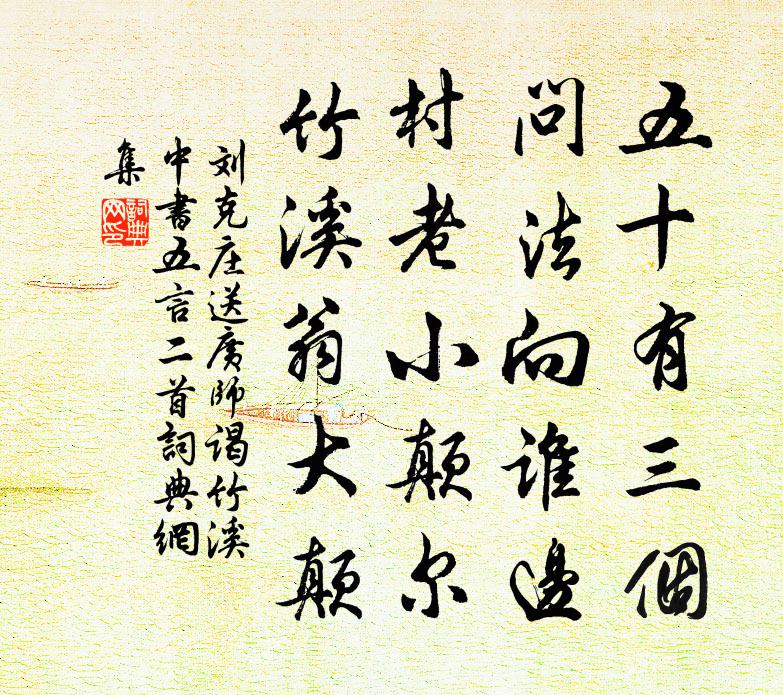 五十有三個
問法向谁邊
村老小颠尔
竹溪翁大颠
刘克庄送廣師谒竹溪
中書五言二首詞典網
集
詞典网印